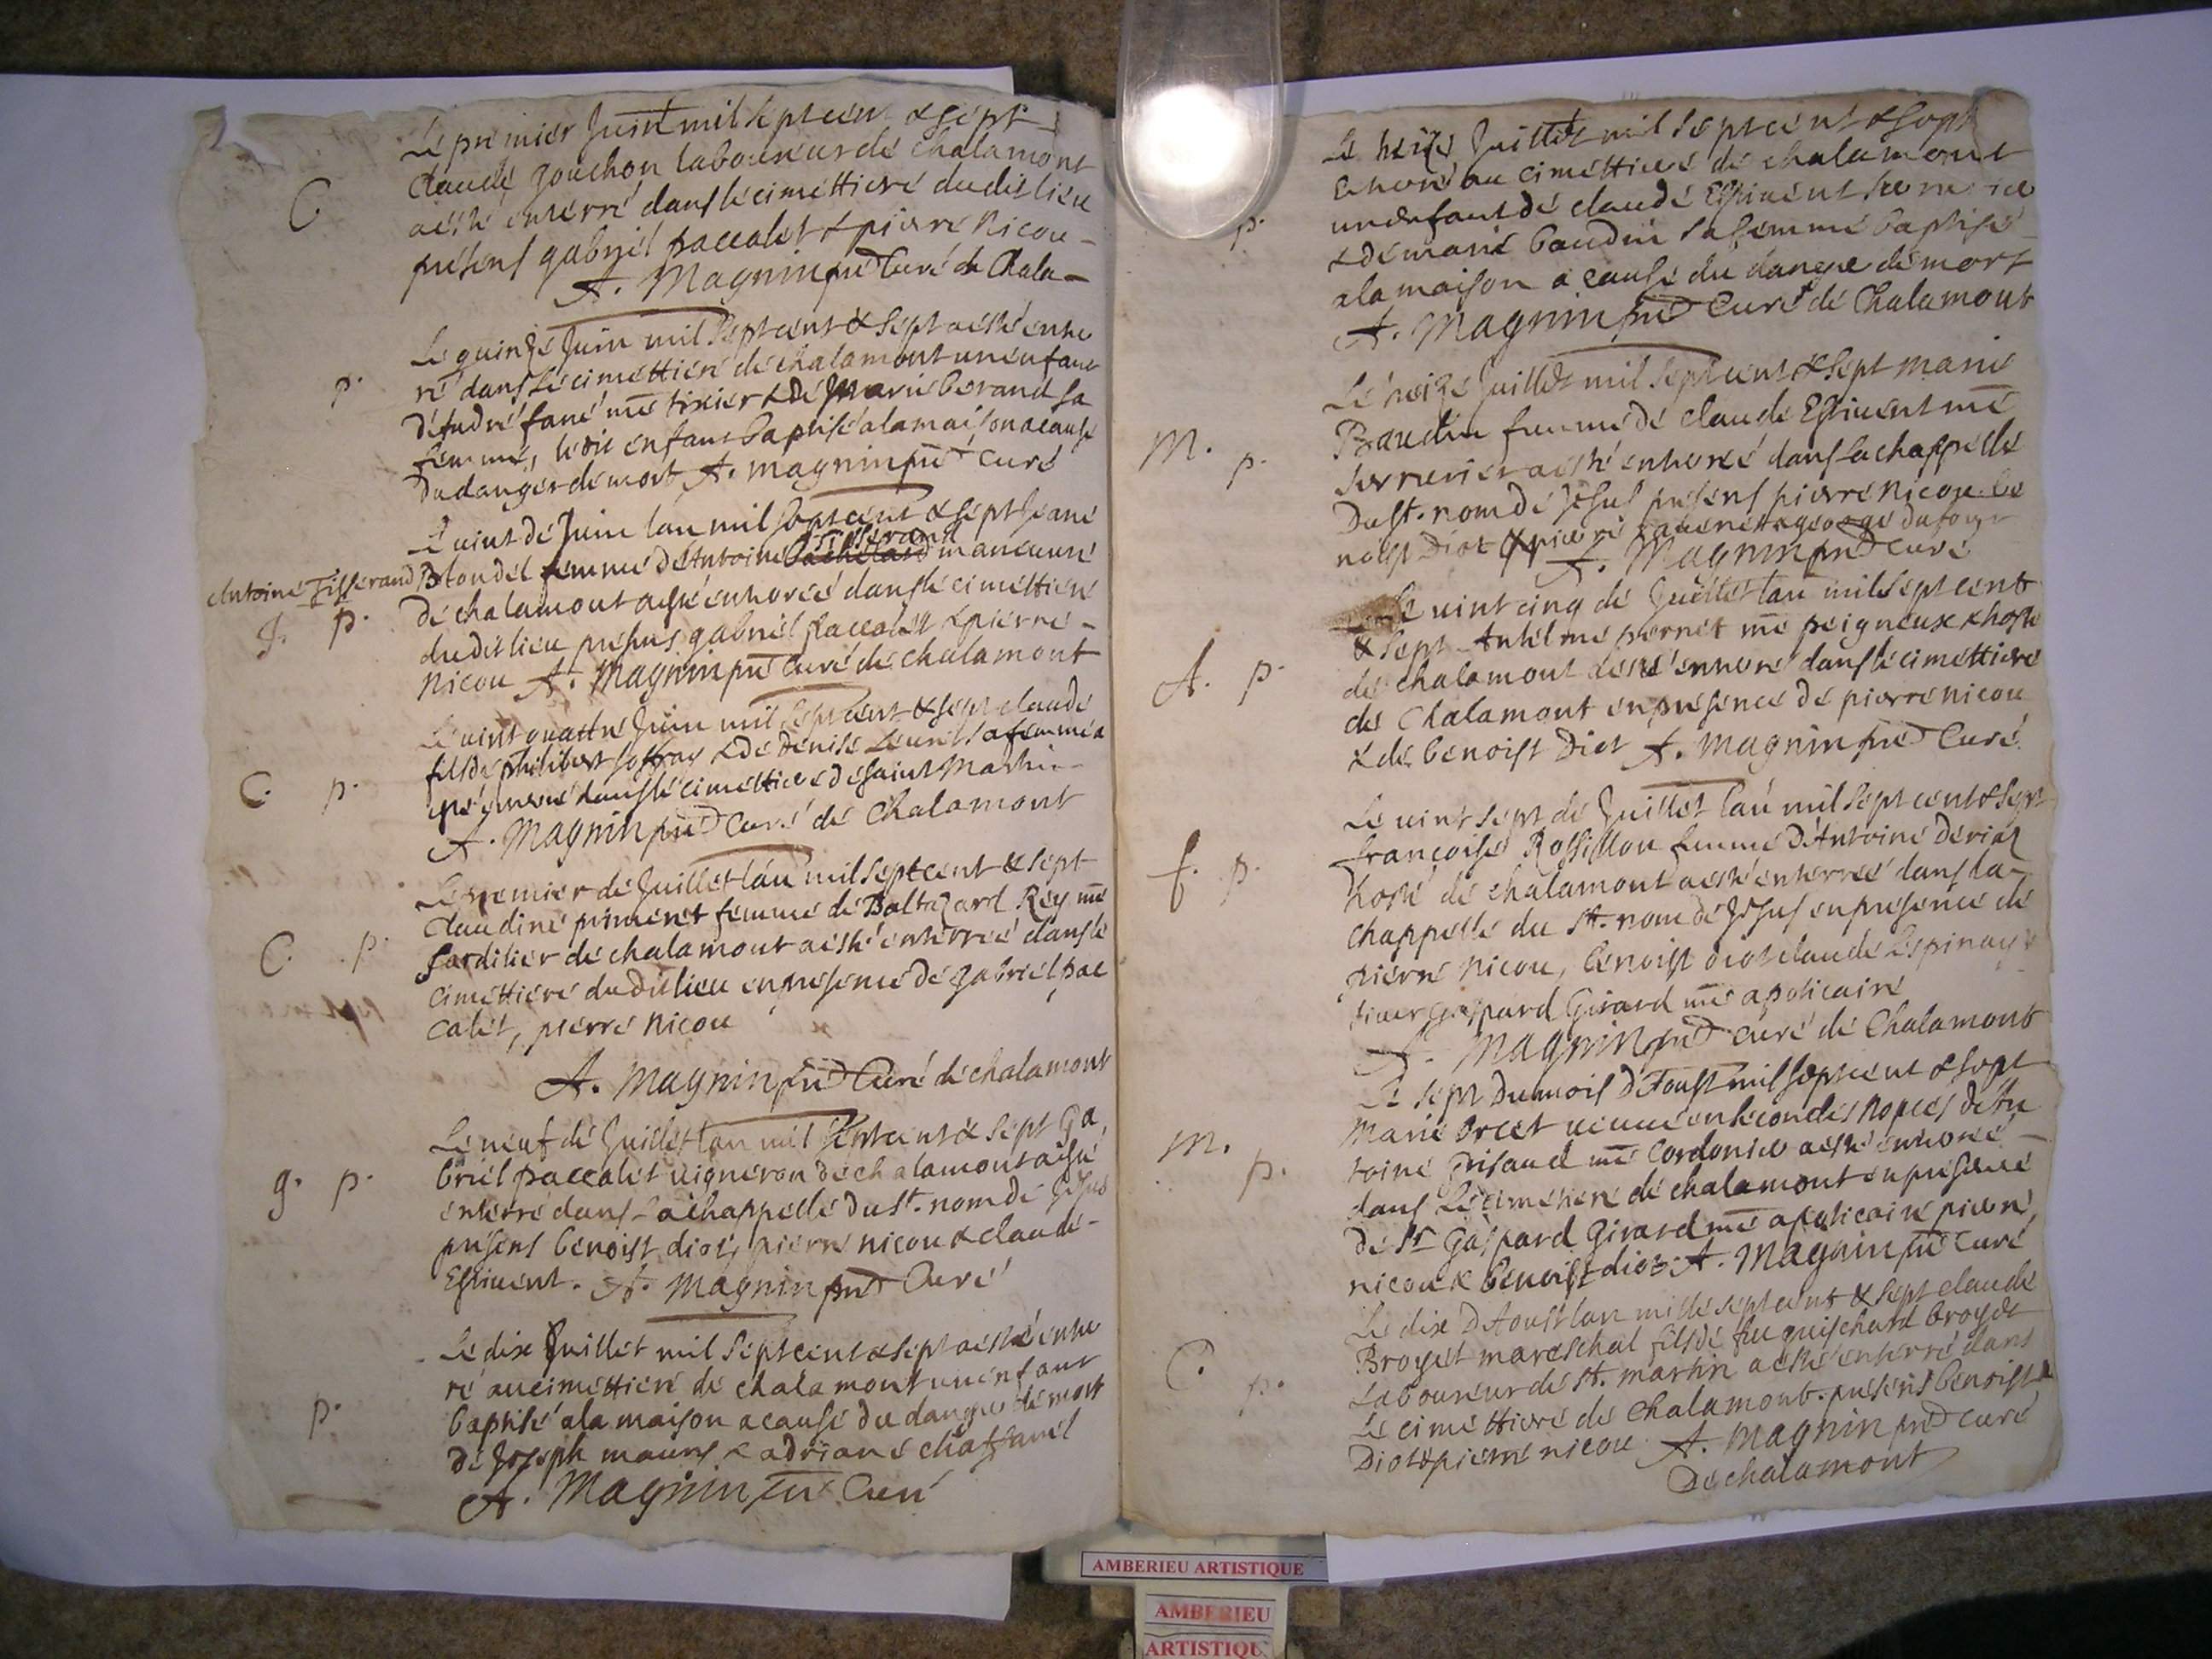 Le premier Juin mil sept cent & sept
C
Claude gouchon laboureur de chalamont
a esté enterré dans le cimettiere dudit lieu
présens gabriel paccalet & pierre Nicou -
A. Magnin prē Curé de Chala-
Le quinze Juin mil sept cent & sept a esté enter
p. ré dans le cimettiere de chalamont un enfant
d'André fané mē tixier & de Marie berand sa
femme, ledit enfant baptisé a la maison a cause
du danger de mort A. Magnin prē Curé
Le vint de Juin l'an mil sept cent & sept Jeane
Tisserand
Antoine Tisserand Blondel femme d'Antoine manœuvre
J. p. de chalamont a esté enterreé dans le cimettiere
dudit lieu présens gabriel paccalet & pierre -
Nicou A. Magnin prē Curé de chalamont
Le vint quattre Juin mil sept cent & sept claude
fils de philibert & de Denise sa femme a
C. p. esté enterré dans le cimettiere de saint Martin -
A. Magnin prē Curé de Chalamont
Le premier de Juillet l'an mil sept cent & sept
Claudine primeret femme de Baltazard Rey mē
C. p. de chalamont a esté enterreé dans le
cimettiere dudit lieu en presence de gabriel pac
calet, pierre Nicou
A. Magnin prē Curé de chalamont
Le neuf de Juillet l'an mil sept cent & sept Ga
g. p. briel paccalet vigneron de chalamont a esté
enterré dans la chappelle du St. nom de Jesus
présens benoist diot, pierre nicou & claude -
Espivent. A. Magnin prē Curé
Le dix Juillet mil sept cent & sept a esté enter
ré au cimettiere de chalamont un enfant
p. baptisé a la maison a cause du danger de mort
de Joseph & adriane chaffanel
A. Magnin prē Curé
Le treize Juillet mil sept cent & sept
enterré au cimettiere de chalamont
p. un enfant de claude Espivent serrurier
& de marie baudin sa femme baptisé
a la maison a cause du danger de mort
A. Magnin prē Curé de Chalamont
Le treize Juillet mil sept cent & sept marie
M. p. Baudin femme de claude Espivent mē
serrurier a esté enterreé dans la chappelle
du St. nom de Jesus présens pierre nicou be
noist Diot & pierre george dufour
A. Magnin prē Curé
Le vint cinq de Juillet l'an mil sept cent
& sept Antelme pernet mē peigneux & hoste
A. p. de chalamont a esté enterré dans le cimettiere
de Chalamont en presence de pierre nicou
& de benoist Diot A. Magnin prē Curé
Le vint sept de Juillet l'an mil sept cent & sept
f. p. françoise Rossillon femme d'Antoine Deriaz
hoste de chalamont a esté enterreé dans la -
chappelle du St. nom de Jesus en presence de
pierre nicou, benoist diot claude Lespinay &
sieur Gaspard Girard mē apoticaire
A. Magnin prē Curé de Chalamont
Le sept du mois d'Aoust mil sept cent & sept
M. Marie orcet veuve en secondes nopces d'An
p. toine Grisaud mē Cordonier a esté enterreé -
dans le cimetiere de chalamont en presence
de Sr Gaspard Girard mē apoticaire pierre
nicou & benoist diot A. Magnin prē Curé
Le dix d'Aoust l'an mille sept cent & sept claude
C. Broyet mareschal fils de feu guischard broyet
p. Laboureur de St. martin a esté enterré dans
Le cimettiere de Chalamont. présens benoist
Diot & pierre nicou A. Magnin prē Curé
de chalamont
AMBERIEU ARTISTIQUE
AMBERIEU
ARTISTIQU